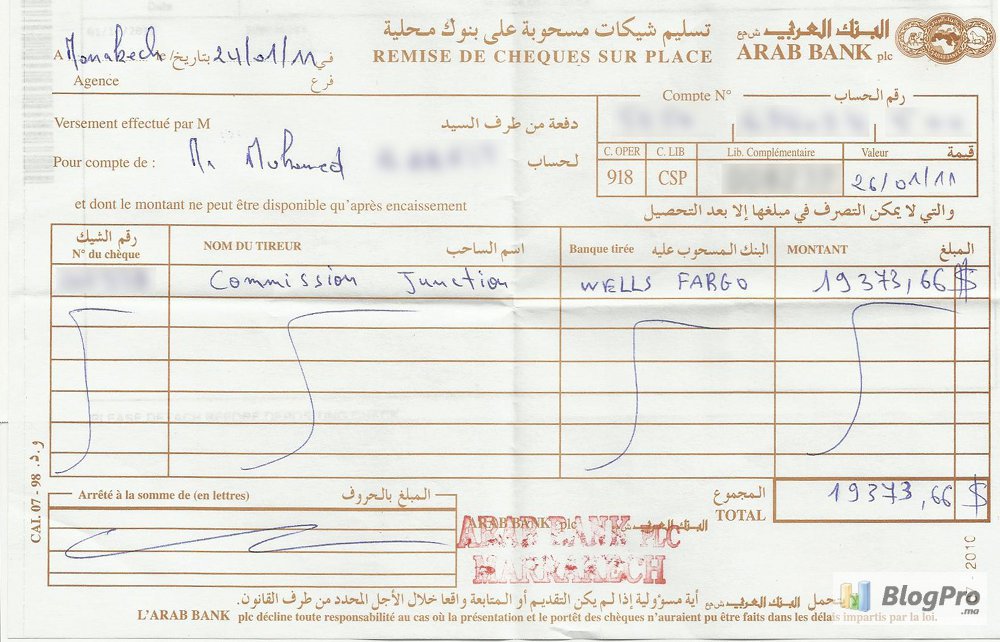 تسليم شيكات مسحوبة على بنوك محلية
REMISE DE CHEQUES SUR PLACE
البنك العربي ش م ع
ARAB BANK plc
A Marrakech في 24/01/11 بتاريخ/
Agence فرع
Compte N° رقم الحساب
Versement effectué par M دفعة من طرف السيد
Pour compte de : Mr Mohamed لحساب
C. OPER C. LIB Lib. Complémentaire Valeur قيمة
918 CSP 26/01/11
et dont le montant ne peut être disponible qu'après encaissement
والتي لا يمكن التصرف في مبلغها إلا بعد التحصيل
رقم الشيك
N° du chèque
NOM DU TIREUR اسم الساحب
Banque tirée البنك المسحوب عليه
MONTANT المبلغ
Commission Junction WELLS FARGO 19373,66 $
PLEASE DETACH BEFORE DEPOSITING CHECK
Arrêté à la somme de (en lettres) المبلغ بالحروف
المجموع
TOTAL
19373,66 $
ARAB BANK plc البنك العربي ش م ع
ARAB BANK PLC
MARRAKECH
CAI. 07 - 98 - و.د.
2010
أية مسؤولية إذا لم يكن التقديم أو المتابعة واقعا خلال الأجل المحدد من طرف القانون.
L'ARAB BANK plc décline toute responsabilité au cas où la présentation et le portêt des chèques n'auraient pu être faits dans les délais impartis par la loi.
BlogPro
.ma